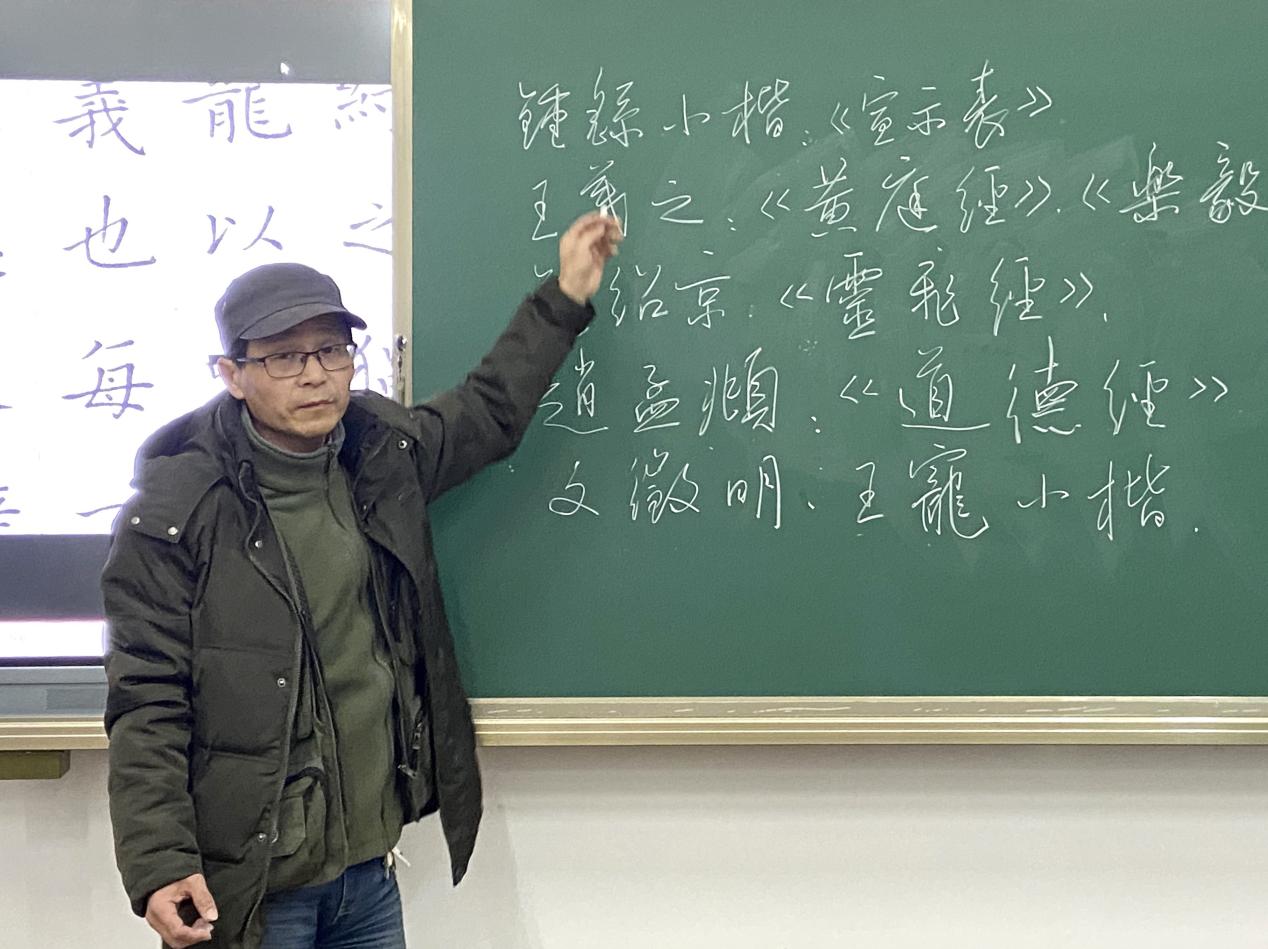 鍾繇小楷:《宣示表》
王羲之:《黃庭經》.《樂毅
紹京.《靈飛經》.
趙孟頫:《道德經》
文徵明、王寵小楷.
義 龍
也 以 之
每